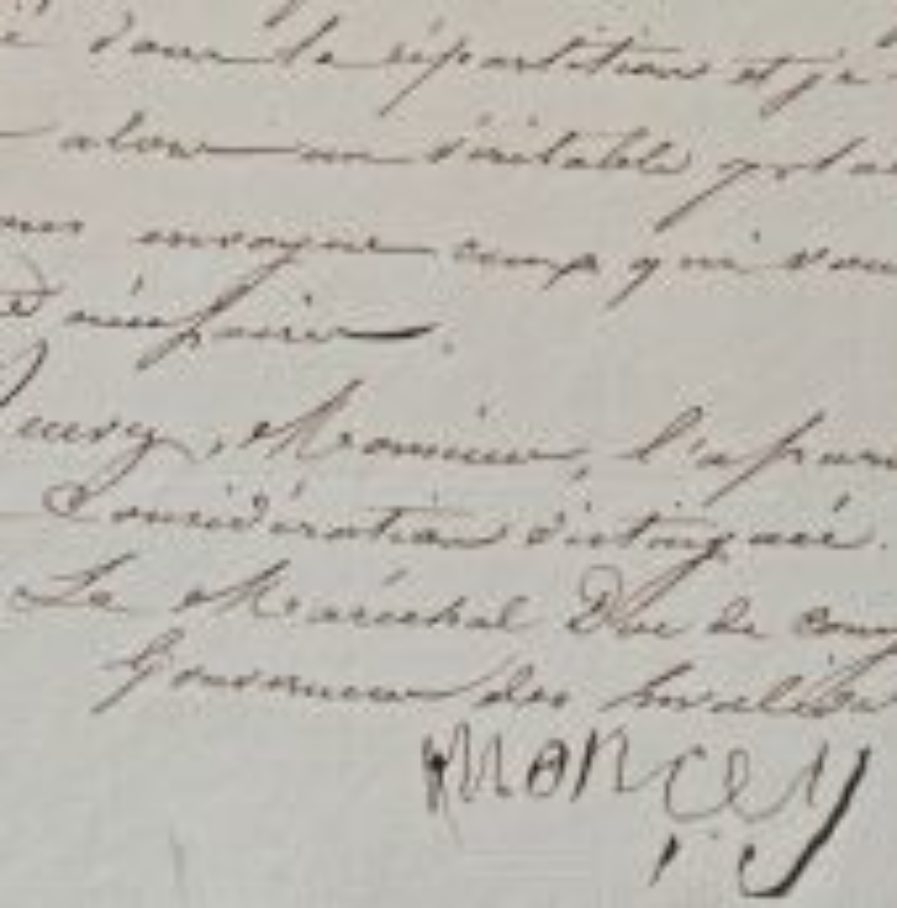 dans la répartition et je
alors un véritable
envoyer ceux qui vou
nécessaire.
, Monsieur, l'assuran
Considération distinguée.
Le Maréchal Duc de Con
Gouverneur des Invalides
Moncey